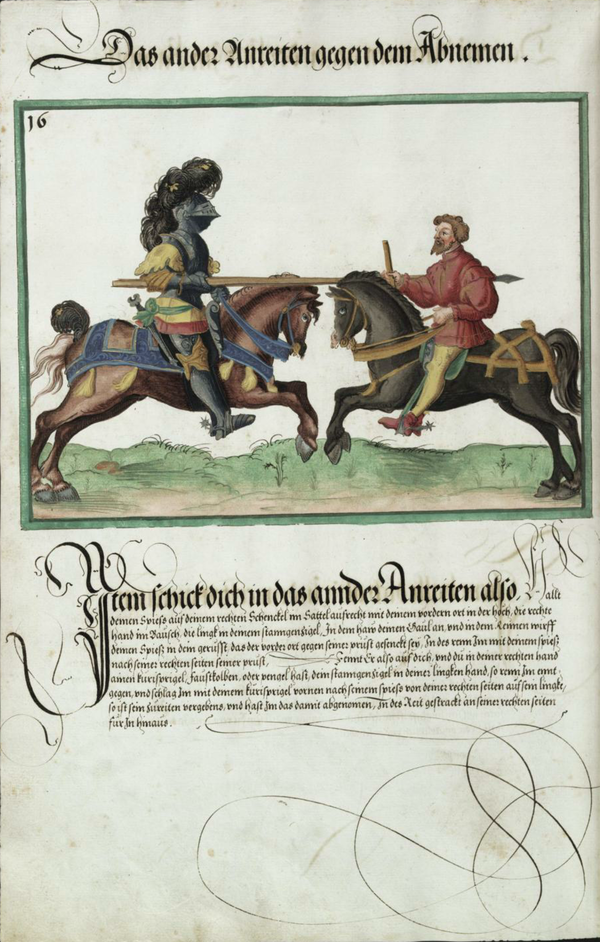 Das ander Anreiten gegen dem Abnemen.
16
Item schick dich in das annder Anreiten also. Halt
deinen Spiess auf deinem rechten Schenckel im Sattel aufrecht mit deinem vordern ort in der hoch, die rechte
hand im Bausch, die lingk in deinem stanngenzigel, In dem haw deinen Gaul an, vnd in dem Rennen wirff
deinen Spiess in dem gerüsst, das der vorder ort gegen seiner prüst gesenckt sey, In des renn Im mit deinem spiess
nach seiner rechten seiten seiner prüst, Rennt Er also auf dich, vnd du in deiner rechten hand
ainen kürisprigel, Fausstkolben, oder pengel hast, dein stanngenzigel in deiner lingken hand, so renn Im ennt
gegen, vnd schlag Im mit deinem kürisprigel vornen nach seinem spiess von deiner rechten seiten auf sein lingke,
so ist sein zureiten vergebens, vnd hast Im das damit abgenomen, in des Reit gestrackt an seiner rechten seiten
für In hinaus.